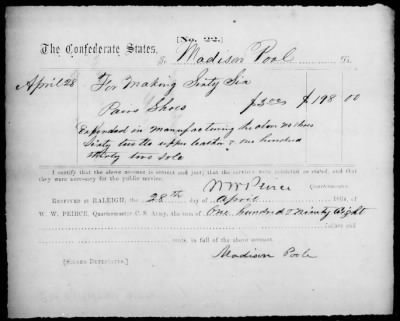 [No. 22.]
The Confederate States,
To Madison Pool Dr.
April 28 For Making Sixty Six
Pairs Shoes @ 3.00 $198 00
Expended in manufacturing the above no shoes
Sixty two lbs upper leather & one hundred
thirty two sole
I certify that the above account is correct and just; that the services were rendered as stated, and that
they were necessary for the public service.
W W Peirce
Quartermaster.
Received at RALEIGH, the 28th day of April 1864, of
W. W. PEIRCE, Quartermaster C. S. Army, the sum of One hundred & Ninety Eight
Dollars and
cents, in full of the above account.
Madison Poole
[SIGNED DUPLICATES.]